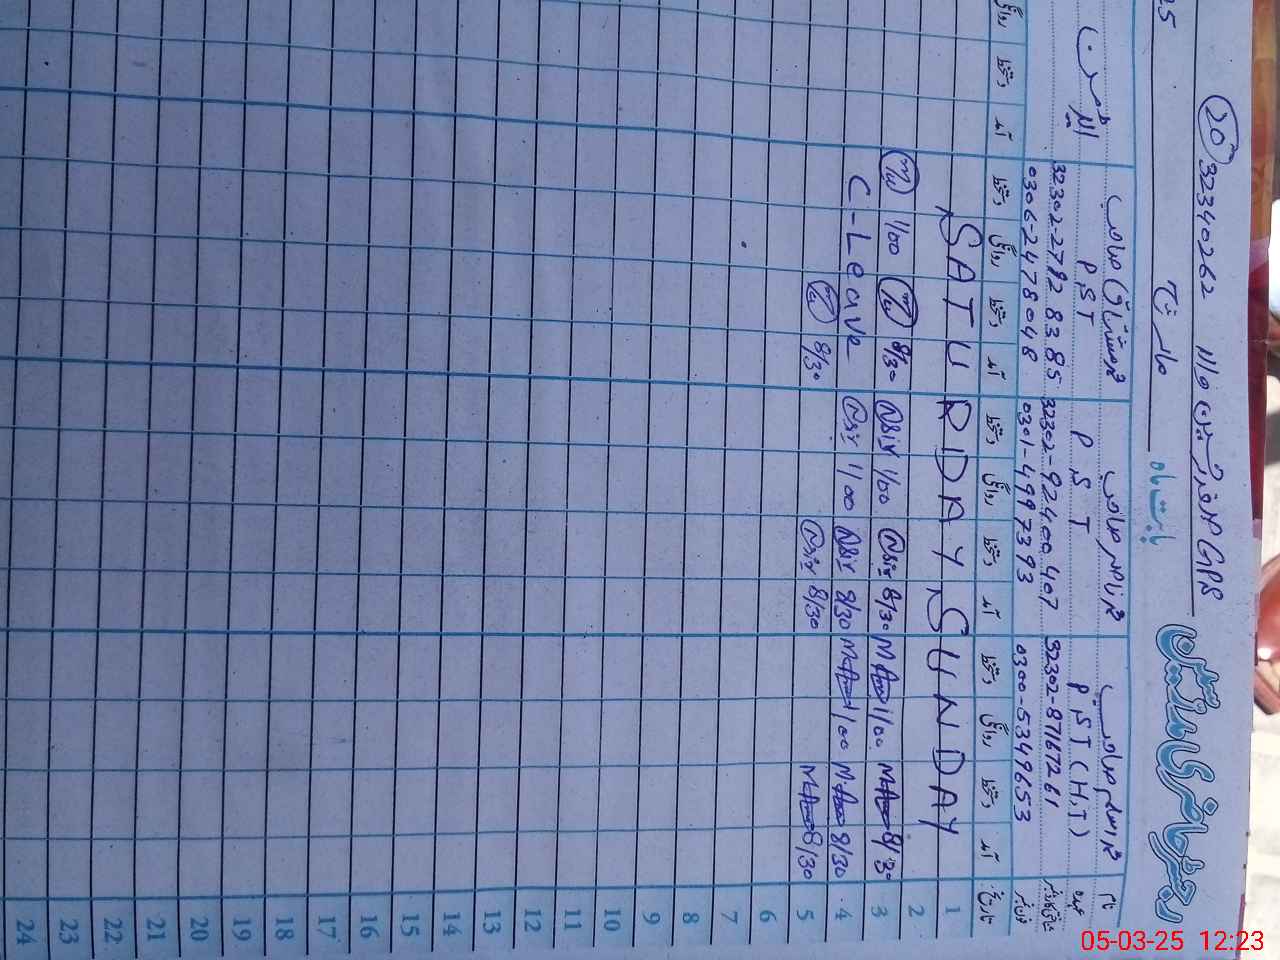 رجسٹر حاضری اساتذہ
GPS 32340262 20
بابت ماہ مارچ 25
نام محمد اسلم صاحب محمد ناصر صاحب محمد مشتاق صاحب
عہدہ PST (H.T) PST PST
شناختی کارڈ نمبر 32302-8716726-1 32302-9240040-7 32302-2792838-5
فون نمبر 0300-5349653 0301-4997393 0306-2478048
تاریخ آمد دستخط روانگی دستخط آمد دستخط روانگی دستخط آمد دستخط روانگی دستخط آمد دستخط روانگی
1 SATURDAY SUNDAY
2
3 8/30 1/00 8/30 Nasir 1/00 Nasir 8/30 1/00
4 8/30 1/00 8/30 Nasir 1/00 Nasir C-Leave
5 8/30 8/30 Nasir 8/30
6
7
8
9
10
11
12
13
14
15
16
17
18
19
20
21
22
23
24
05-03-25 12:23